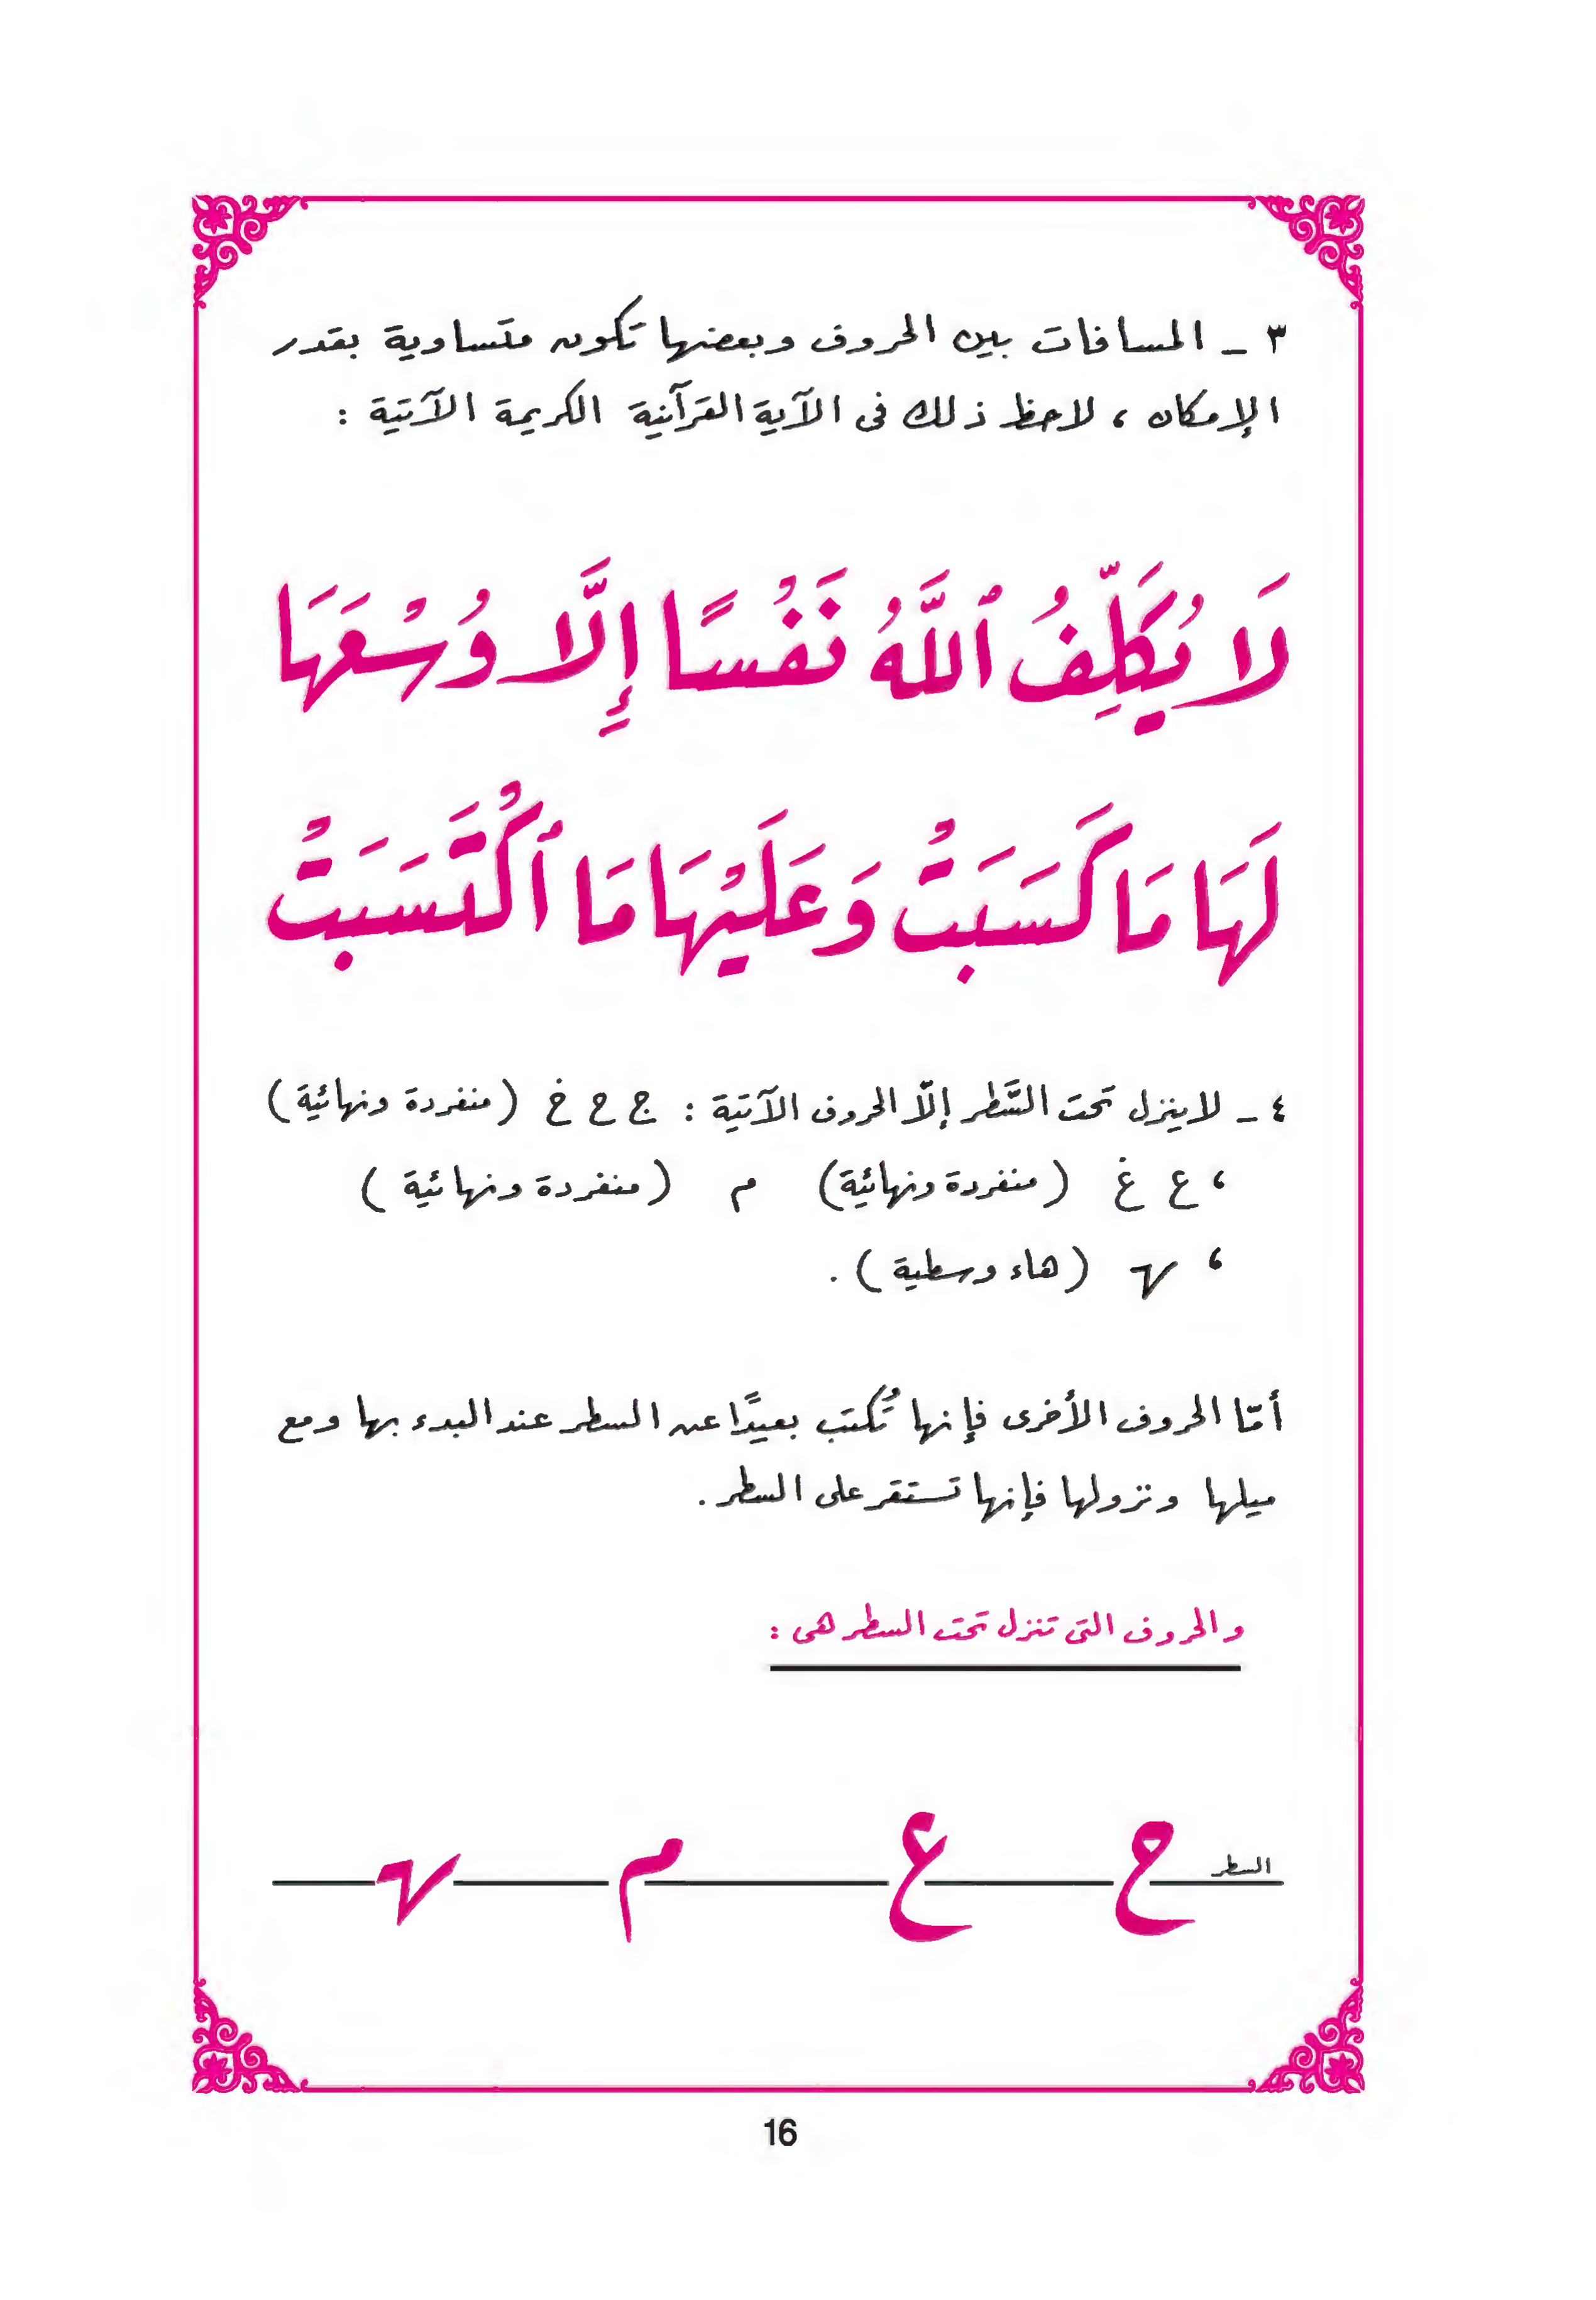 ٣ - المسافات بين الحروف وبعضها تكون متساوية بقدر
الإمكان ، لاحظ ذلك فى الآية القرآنية الكريمة الآتية :
لَا يُكَلِّفُ ٱللَّهُ نَفْسًا إِلَّا وُسْعَهَا
لَهَا مَا كَسَبَتْ وَعَلَيْهَا مَا ٱكْتَسَبَتْ
٤ - لا ينزل تحت السَّطر إلَّا الحروف الآتية : ج ح خ (منفردة ونهائية)
، ع غ (منفردة ونهائية) م (منفردة ونهائية)
، ـهـ (هاء وسطية) .
أمّا الحروف الأخرى فإنها تُكتب بعيدًا عن السطر عند البدء بها ومع
ميلها ونزولها فإنها تستقر على السطر .
والحروف التى تنزل تحت السطر هى :
السطر ح ع م ـهـ
16